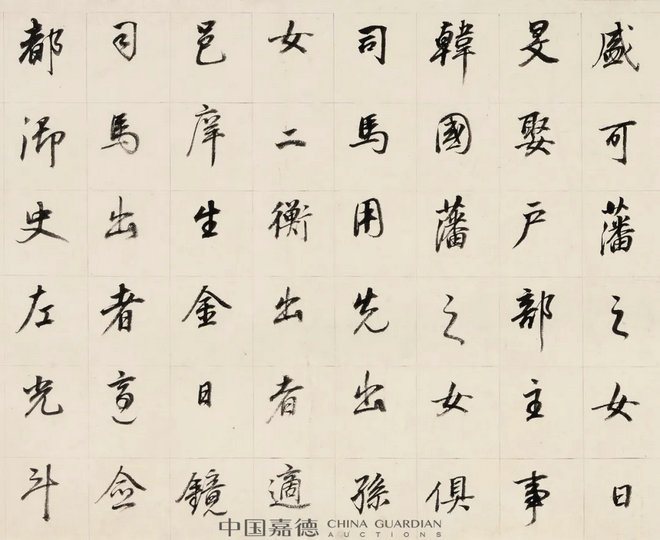 盛可藩之女日
旻娶戶部主事
韓國藩之女俱
司馬用先出孫
女二衡出者適
邑庠生金日鏡
司馬出者適僉
都御史左光斗
中国嘉德 CHINA GUARDIAN
AUCTIONS